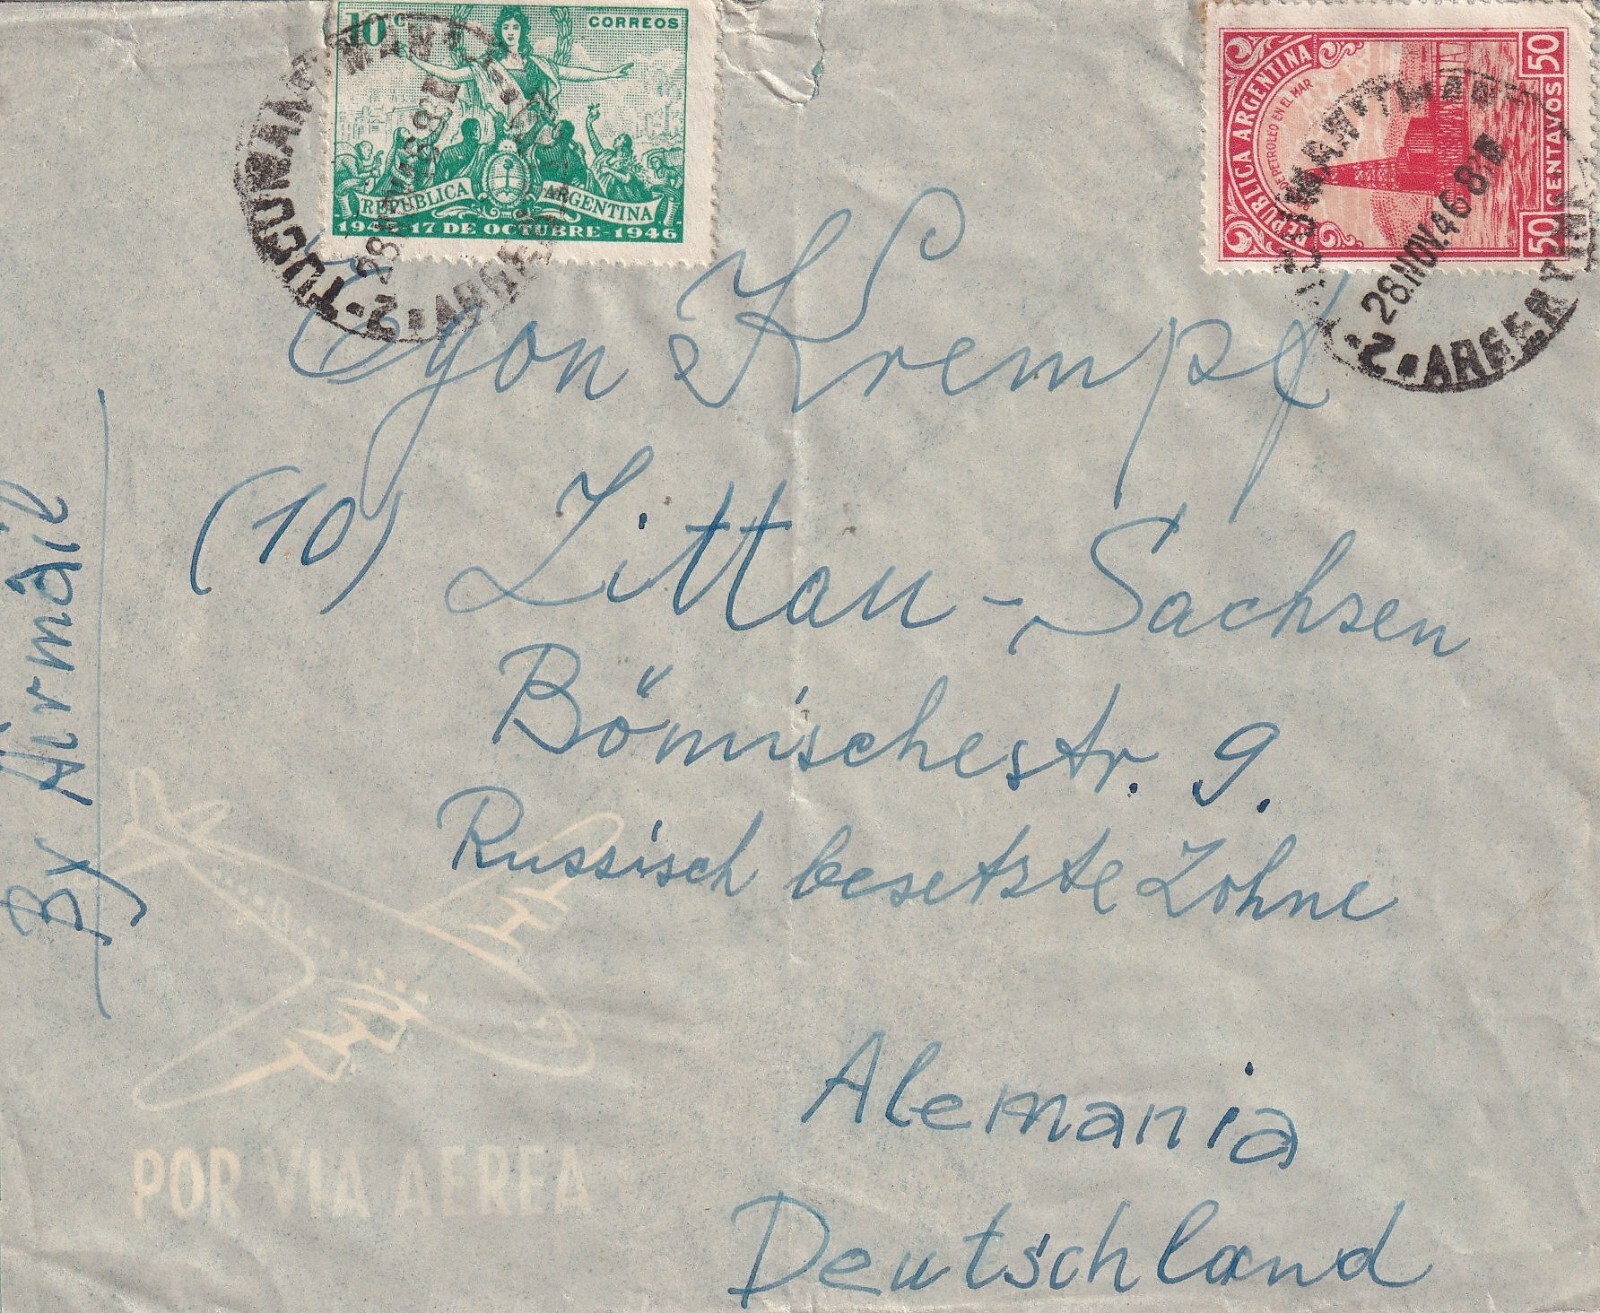 10 c CORREOS
REPUBLICA ARGENTINA
1945-17 DE OCTUBRE-1946
REPUBLICA ARGENTINA
DE PETROLEO EN EL MAR
50 CENTAVOS 50
TUCUMAN
28
2 • ARGEN
28 NOV. 46 8
2 • ARGENTINA
Egon Krempf
(10) Zittau - Sachsen
Bömischestr. 9.
Russisch besetzte Zohne
Alemania
Deutschland
By Airmail
POR VIA AEREA